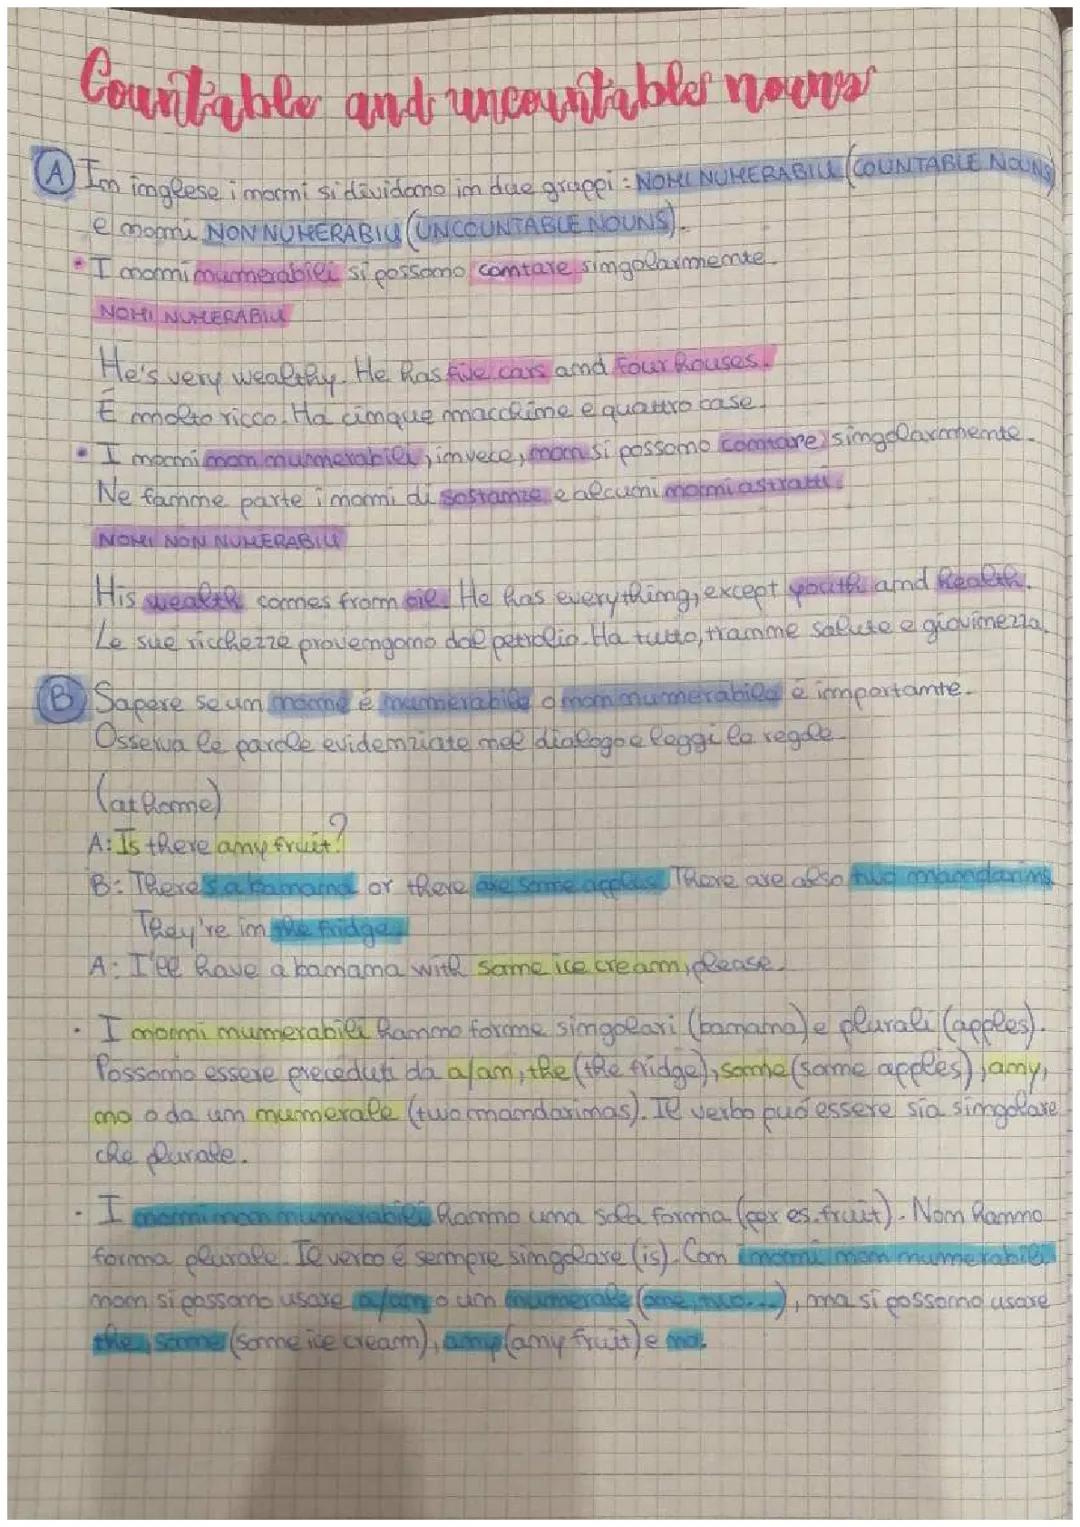 Countable and uncountable nouns
A In inglese i nomi si dividono in due gruppi: NOMI NUMERABILI (COUNTABLE NOUNS)
e nomi NON NUMERABILI (UNCOUNTABLE NOUNS).
• I nomi numerabili si possono contare singolarmente.
NOMI NUMERABILI
He's very wealthy. He has five cars and four houses.
É molto ricco. Ha cinque macchine e quattro case.
• I nomi non numerabili, invece, non si possono contare singolarmente.
Ne fanne parte i nomi di sostanze e alcuni nomi astratti.
NOMI NON NUMERABILI
His wealth comes from oil. He has everything, except youth and health.
Le sue ricchezze provengono dal petrolio. Ha tutto, tranne salute e giovinezza.
B Sapere se un nome é numerabile o non numerabile é importante.
Osserva le parole evidenziate nel dialogo e leggi le regole
(at home)
A: Is there any fruit?
B: There's a banana or there are some apples. There are also two mandarins.
They're in the fridge.
A: I'll have a banana with some ice cream, please.
• I nomi numerabili hanno forme singolari (banana) e plurali (apples).
Possono essere preceduti da a/an, the (the fridge), some (some apples), any,
no o da un numerale (two mandarinas). Il verbo può essere sia singolare
che plurale.
• I nomi non numerabili hanno una sola forma (per es. fruit). Non hanno
forma plurale. Il verbo é sempre singolare (is). Con i nomi non numerabili
non si possono usare a/an o un numerale (one, two...), ma si possono usare
the, some (some ice cream), any (any fruit) e no.